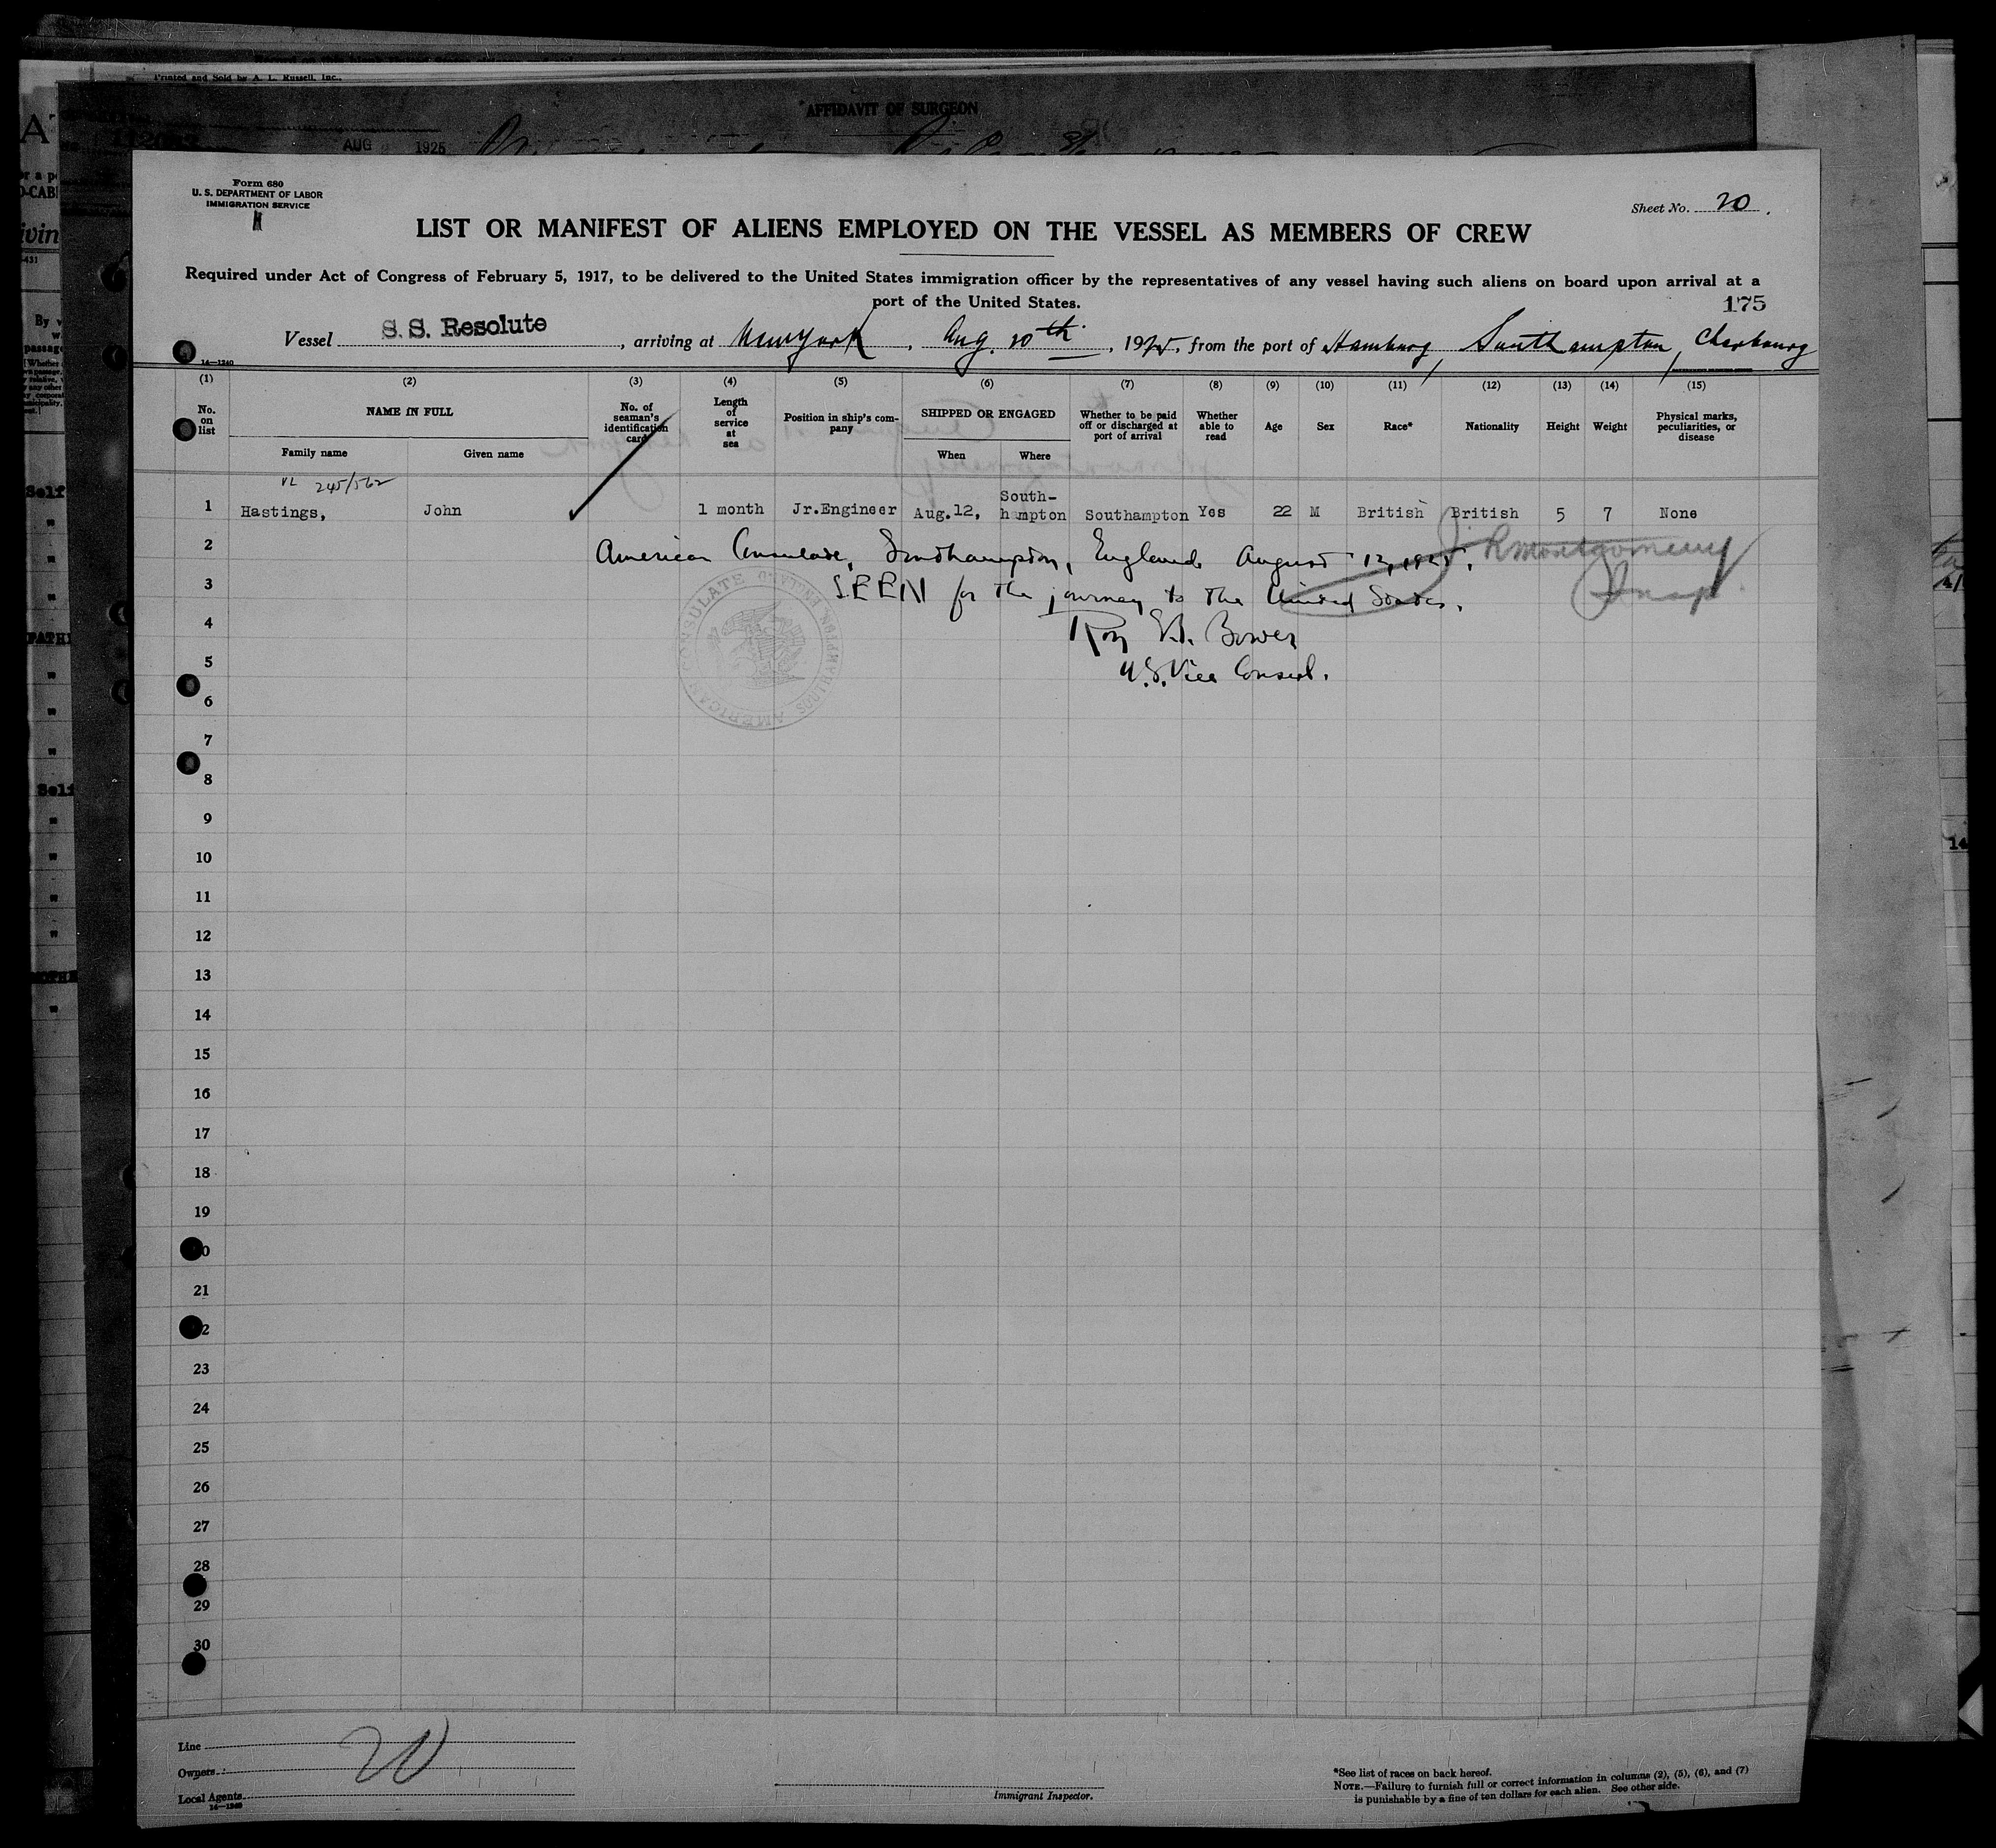 Printed and Sold by A. L. Russell, Inc.,
AFFIDAVIT OF SURGEON
AUG 1925
Form 680
U. S. DEPARTMENT OF LABOR
IMMIGRATION SERVICE
Sheet No. 20
LIST OR MANIFEST OF ALIENS EMPLOYED ON THE VESSEL AS MEMBERS OF CREW
Required under Act of Congress of February 5, 1917, to be delivered to the United States immigration officer by the representatives of any vessel having such aliens on board upon arrival at a
port of the United States.
175
Vessel S. S. Resolute, arriving at New York, Aug. 20th, 1925, from the port of Hamburg, Southampton, Cherbourg
14-1240
(1) (2) (3) (4) (5) (6) (7) (8) (9) (10) (11) (12) (13) (14) (15)
No. on list NAME IN FULL No. of seaman's identification card Length of service at sea Position in ship's company SHIPPED OR ENGAGED Whether to be paid off or discharged at port of arrival Whether able to read Age Sex Race* Nationality Height Weight Physical marks, peculiarities, or disease
Family name Given name When Where
245/562
1 Hastings, John 1 month Jr.Engineer Aug.12, South-hampton Southampton Yes 22 M British British 5 7 None
2 American Consulate, Southampton, England August 12, 1925.
J. R Montgomery
Insp.
3 SEEN for the journey to the United States.
4 Roy E.B. Bower
5 U.S. Vice Consul.
AMERICAN CONSULATE SOUTHAMPTON ENGLAND
6
7
8
9
10
11
12
13
14
15
16
17
18
19
20
21
22
23
24
25
26
27
28
29
30
Line
20
Owners
Local Agents
14-1240
Immigrant Inspector.
*See list of races on back hereof.
NOTE.—Failure to furnish full or correct information in columns (2), (5), (6), and (7)
is punishable by a fine of ten dollars for each alien. See other side.